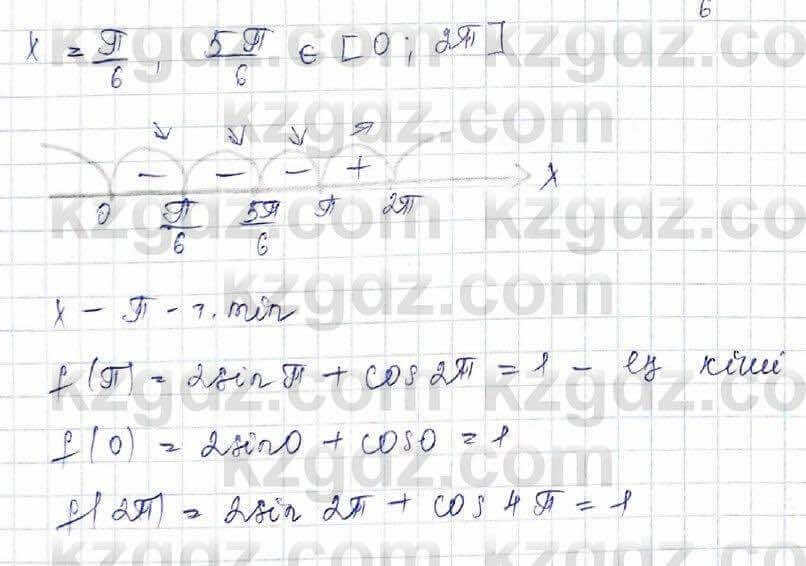 6
x = π/6, 5π/6 ∈ [0; 2π]
↘ ↘ ↘ ↗
− − − +
0 π/6 5π/6 π 2π x
x − π − т. min
f(π) = 2sin π + cos 2π = 1 − ең кіші
f(0) = 2sin0 + cos0 = 1
f(2π) = 2sin 2π + cos 4π = 1
kzgdz.com kzgdz.com
kzgdz.com kzgdz.com
kzgdz.com kzgdz.com
kzgdz.com kzgdz.com
kzgdz.com kzgdz.com